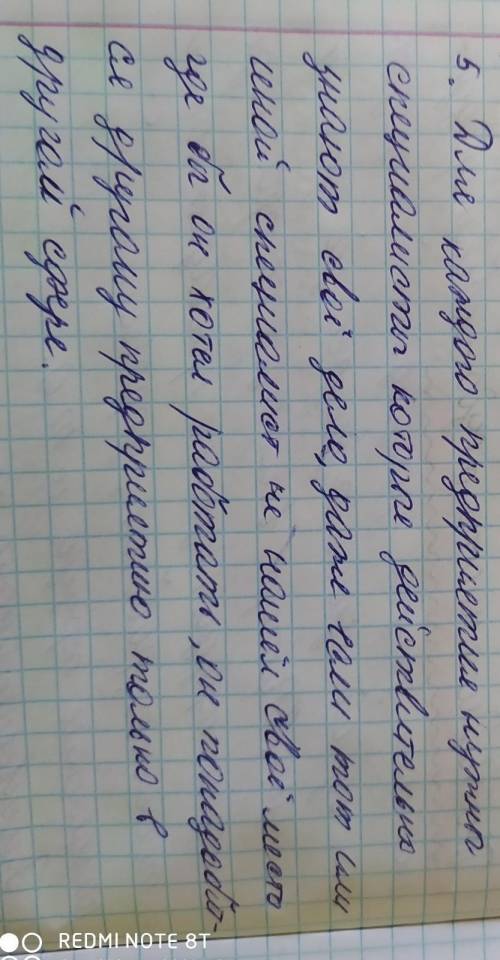 5. Для каждого предприетие нужны
специалисты которые действительно
знают своё дело, даже если тот или
иной специалист не нашел своё место
где бы он хотел работать, он понадобит-
ся другому предприетию только в
другой сфере.
REDMI NOTE 8T